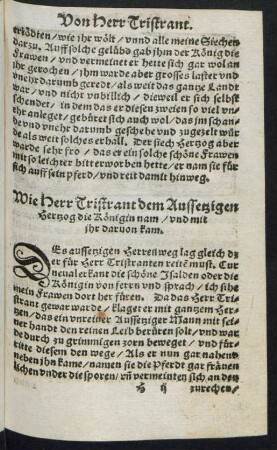 Von Herr Tristrant.
ertödten / wie jhr wölt / vnnd alle meine Siechen
darzu. Auff solche gelübd gab jhm der König die
Frawen / vnd vermeinet er hette sich gar wol an
jhr gerochen / jhm warde aber grosses laster vnd
vnehr darumb geredt / als weit das gantze Landt
war / vnd nicht vnbillich / dieweil er sich selbst
schendet / in dem das er diesen zweien so viel vn-
ehr anleget / gebüret sich auch wol / das jm schan-
de vnd vnehr darumb geschehe vnd zugezelt wür-
de als weit solches erhall. Der siech Hertzog aber
warde sehr fro / das er ein solche schöne Frawen
mit so leichter bitt erworben hette / er nam sie für
sich auff sein pferd / vnd reit damit hinweg.
Wie Herr Tristrant dem Aussetzigen
Hertzog die Königin nam / vnd mit
jhr daruon kam.
DEs aussetzigen Herren weg lag gleich da
für Herr Tristranten reit e must. Cur
neual erkant die schöne Isalden oder die
Königin von fern vnd sprach / ich sihe
mein Frawen dort her füren. Da das Herr Tri-
strant gewar warde / klaget er mit gantzem Her-
tzen / das ein vnreiner Aussetziger Mann mit sei-
ner handt den reinen Leib berüren solt / vnd war-
de durch zu grimmigen zorn beweget / vnd für-
ritte diesem den wege / Als er nun gar nahend
neben jhn kame / namen sie die Pferdt gar fräuen
lichen vnder die sporen / vñ vermeinten sich an den
H ij zurechen /